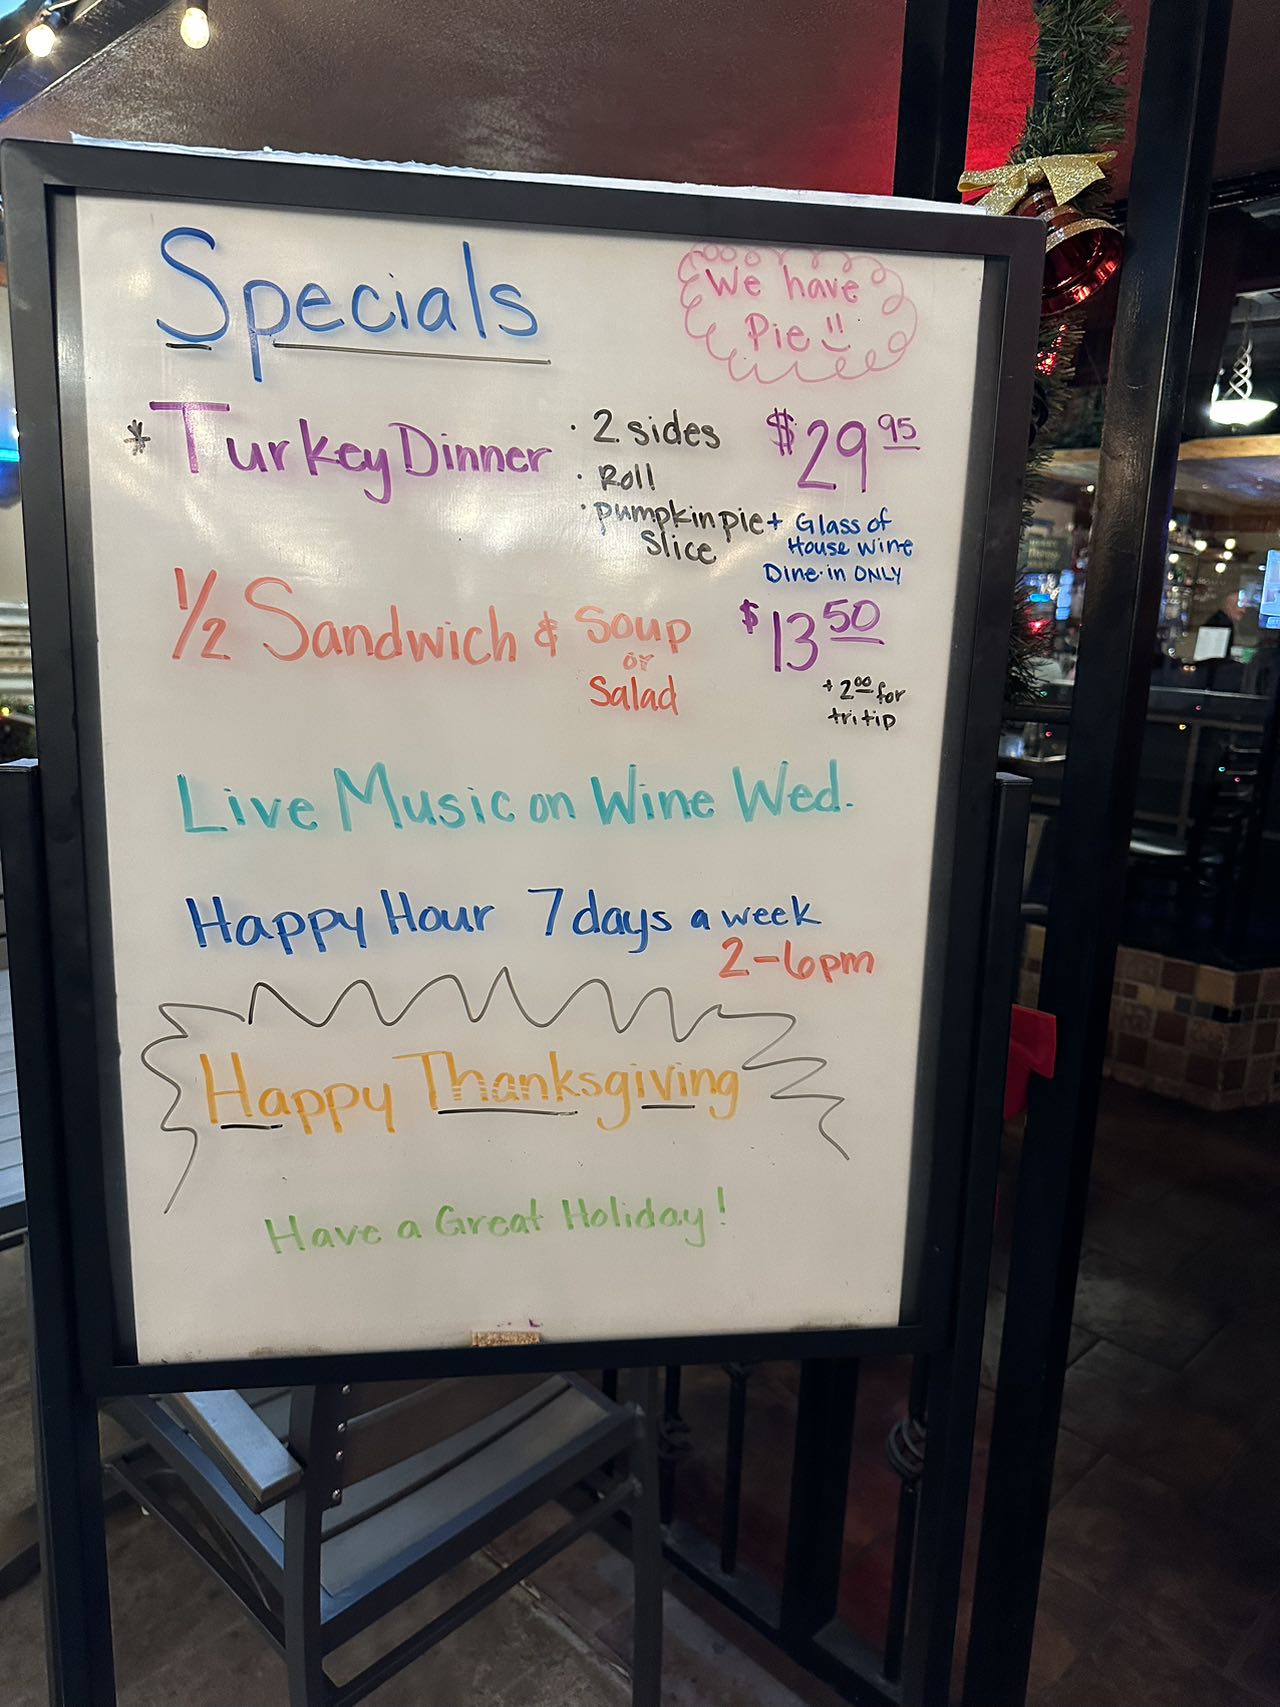 Specials
We have
Pie
* Turkey Dinner
· 2 sides
· Roll
· pumpkin pie
Slice
$29 95
+ Glass of
House wine
Dine-in ONLY
1/2 Sandwich & Soup
or
Salad
$13 50
+ 2 00 for
tri tip
Live Music on Wine Wed.
Happy Hour 7 days a week
2-6pm
Happy Thanksgiving
Have a Great Holiday!